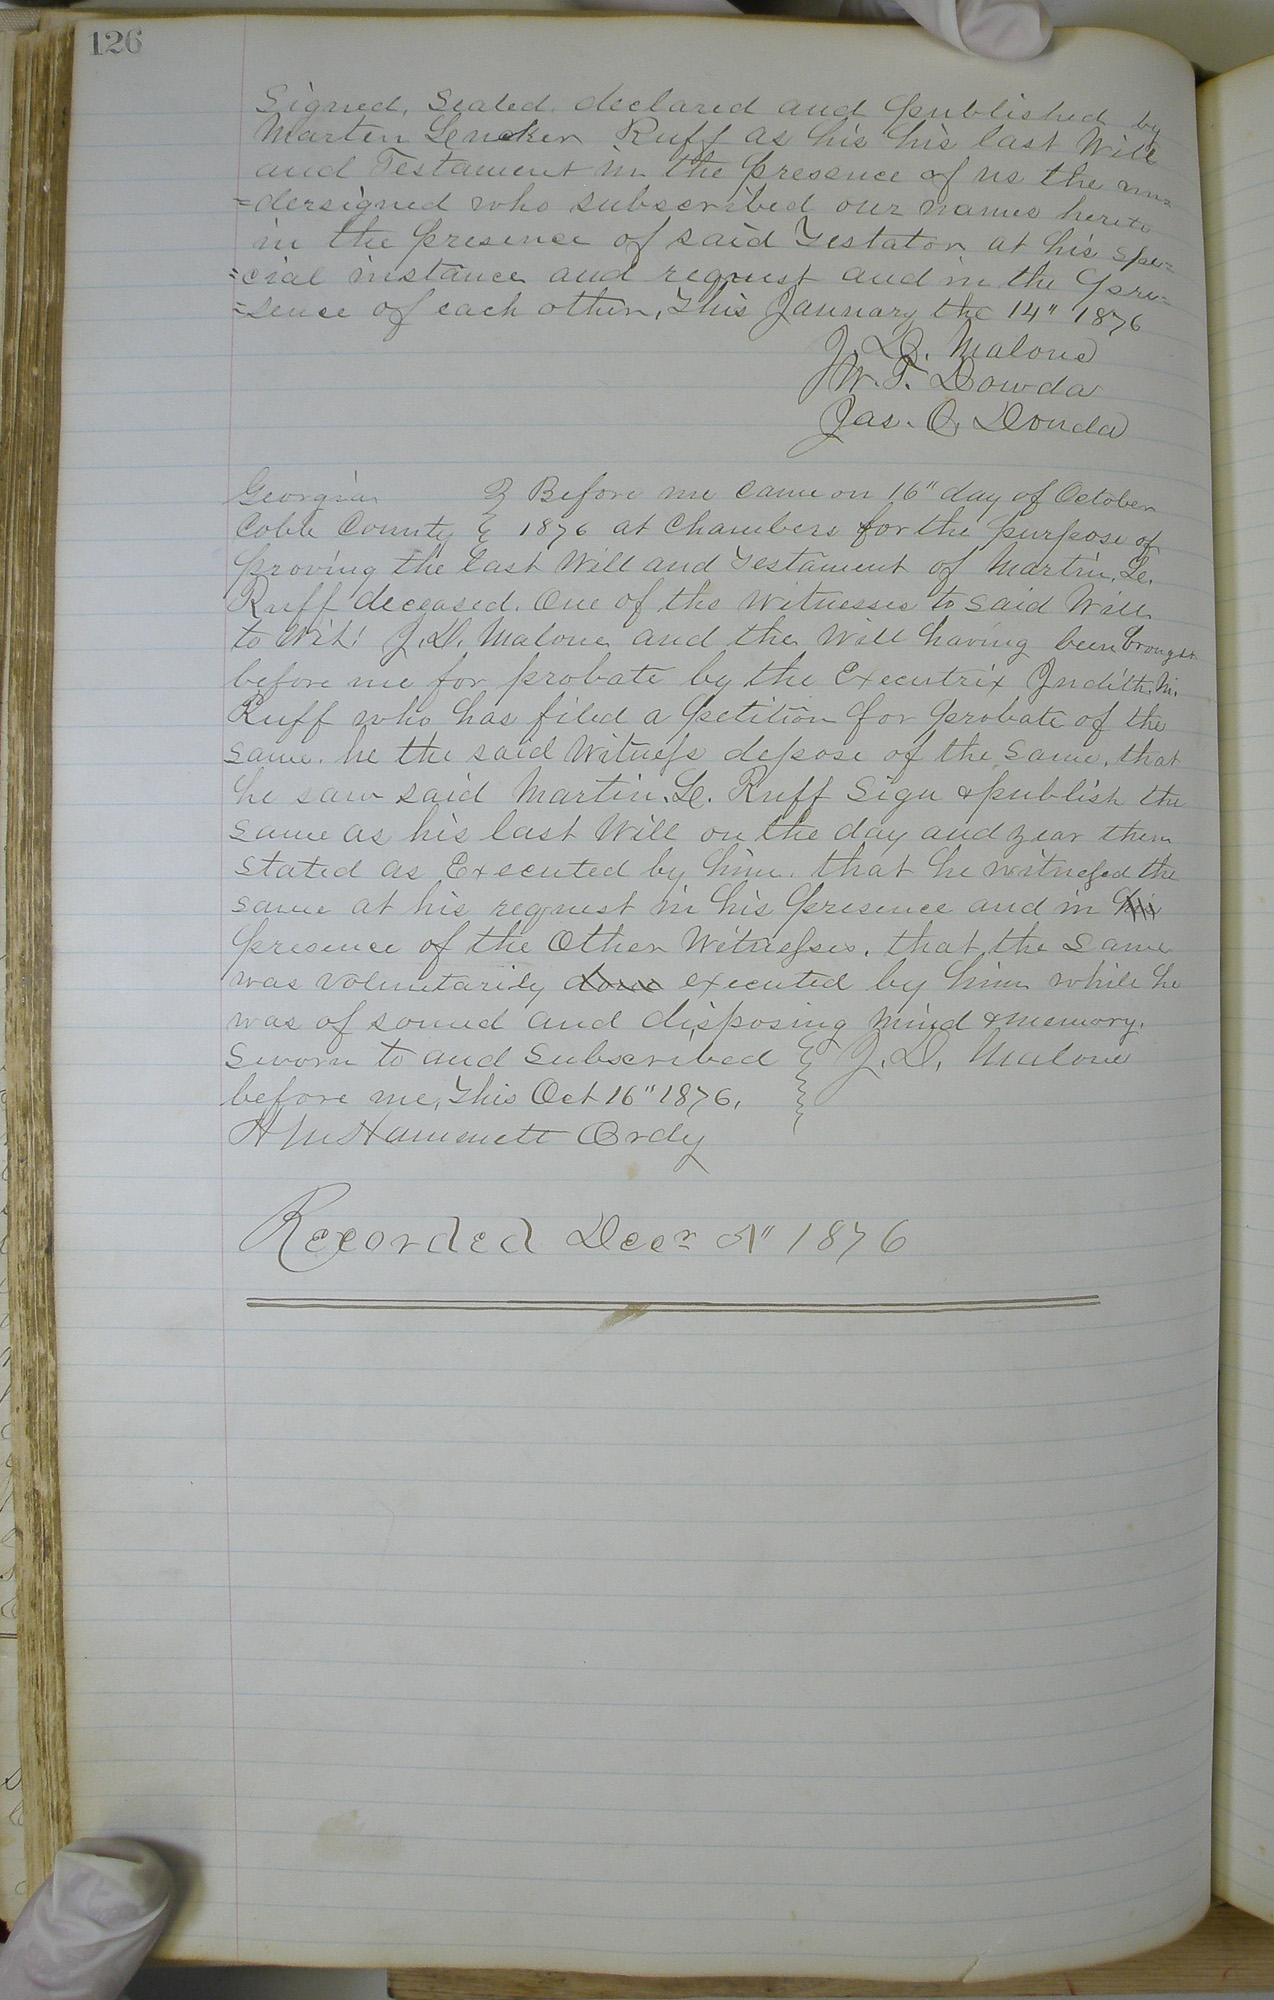 126
Signed, Sealed, declared and published by
Marten Lencker Ruff as his his last Will
and Testament in the presence of us the un=
=dersigned who subscribed our names hereto
in the presence of said Testator at his spe=
=cial instance and request and in the pre=
=sence of each other, This January the 14" 1876
J. D. Malone
W. T. Dowda
Jas. O. Douda
Georgia } Before me came on 16" day of October
Cobb County } 1876 at Chambers for the purpose of
proving the last Will and Testament of Martin. L.
Ruff deceased. One of the Witnesses to said Will
to Wit: J. D. Malone and the Will having been brought
before me for probate by the Executrix Judith. M.
Ruff who has filed a petition for probate of the
same. he the said Witness depose of the same, that
he saw said Martin. L. Ruff Sign & publish the
same as his last Will on the day and year them
stated as Executed by him. that he witnessed the
same at his request in his presence and in his
presence of the Other Witnesses. that the same
was voluntarily done executed by him while he
was of sound and disposing mind & memory.
Sworn to and Subscribed } J. D. Malone
before me, This Oct 16" 1876.
H M Hammett Ordy
Recorded Decr 1876